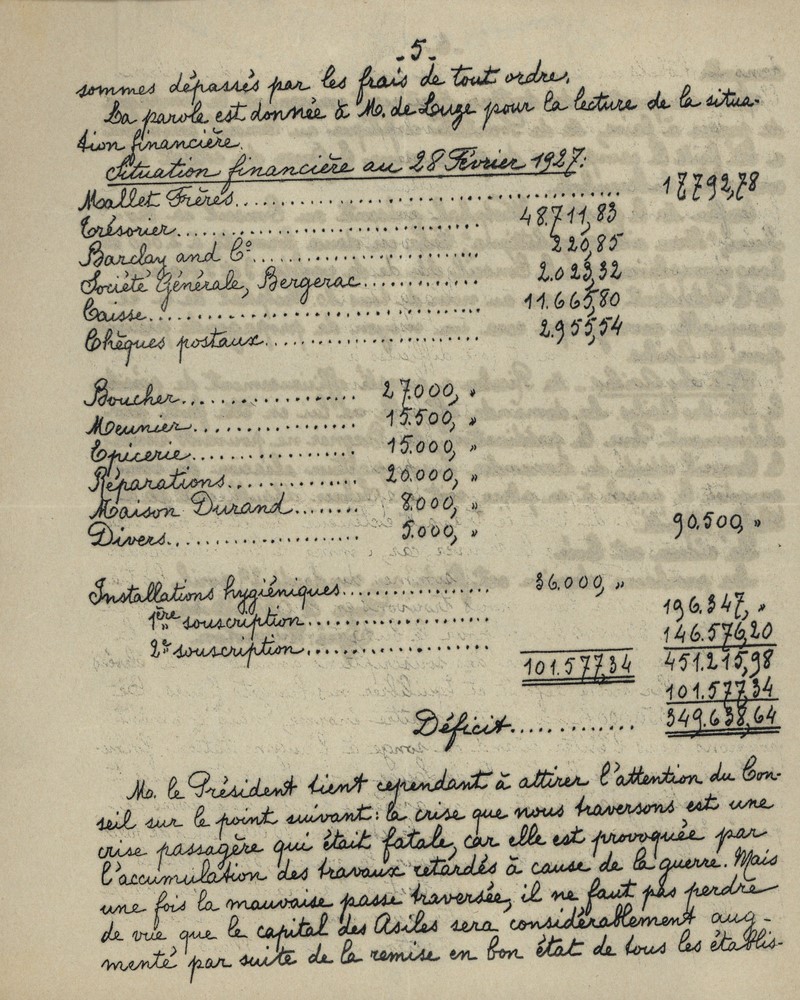 - 5 -
sommes dépassés par les frais de tout ordre.
La parole est donnée à M. de Luze pour la lecture de la situa-
tion financière.
Situation financière au 28 Février 1927:
Mallet Frères........................................ 17792,78
Trésorier........................... 48.711,83
Barclay and C°..................... 220,85
Société Générale, Bergerac............ 2.023,32
Caisse.............................. 11.665,80
Chèques postaux.................... 2.955,54
Boucher.................. 27.000, »
Meunier................. 15.500, »
Epicerie................. 15.000, »
Réparations............. 20.000, »
Maison Durand........ 8.000, »
Divers.................... 5.000, » 90.500, »
Installations hygiéniques................ 36.000, »
1ère souscription.................... 196.347, »
2e souscription.................... 146.576,20
101.577,34 451.215,98
101.577,34
Déficit............. 349.638,64
M. le Président tient cependant à attirer l'attention du Con-
seil sur le point suivant: la crise que nous traversons est une
crise passagère qui était fatale, car elle est provoquée par
l'accumulation des travaux retardés à cause de la guerre. Mais
une fois la mauvaise passe traversée, il ne faut pas perdre
de vue que le capital des Asiles sera considérablement aug-
menté par suite de la remise en bon état de tous les établis-